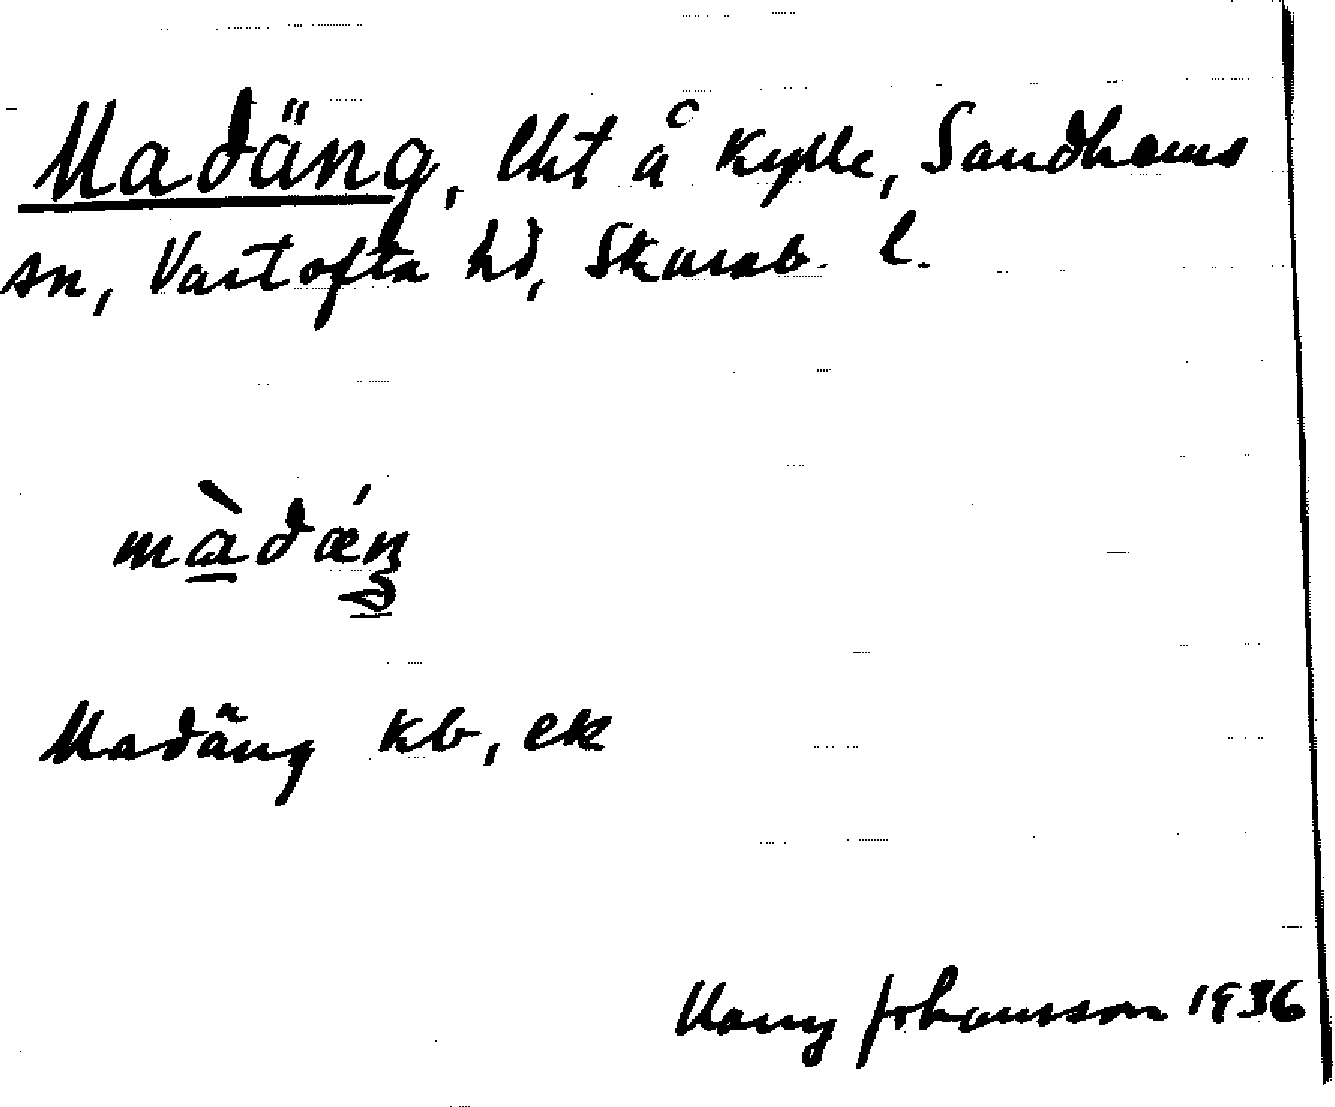 Madäng, lht å Kylle, Sandhems
sn, Vartofta hd, Skarab. l.
màdǽŋ
Madäng kb, ek
Harry Johansson 1936